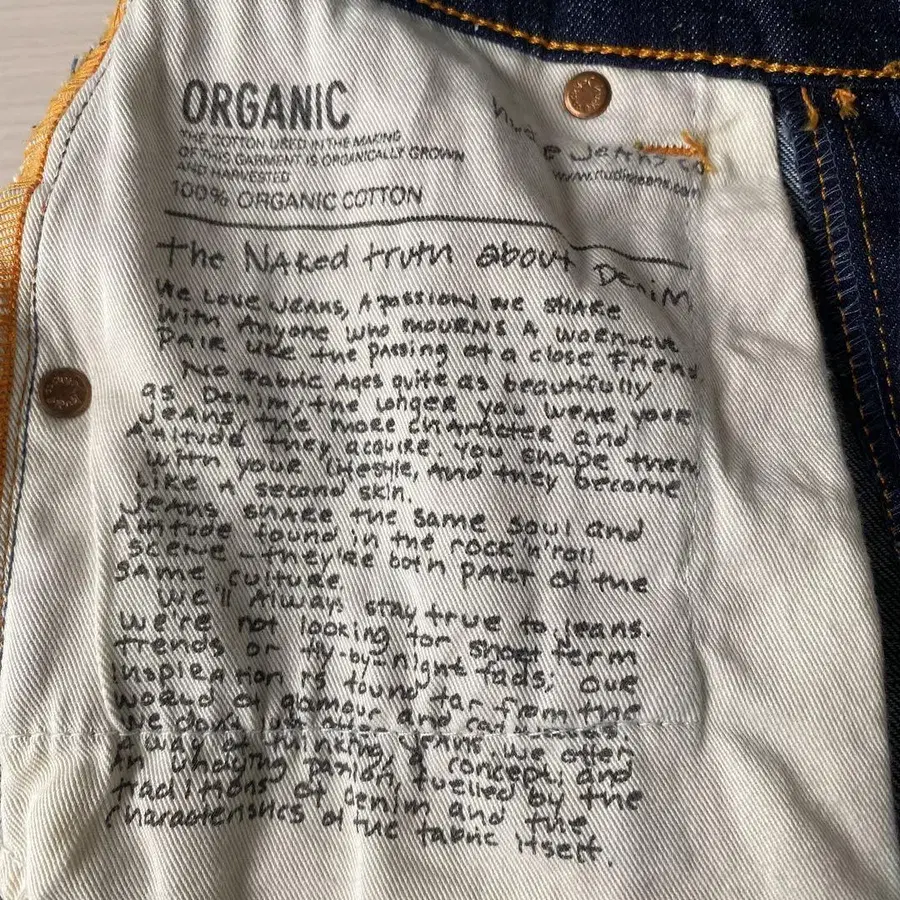 ORGANIC
THE COTTON USED IN THE MAKING
OF THIS GARMENT IS ORGANICALLY GROWN
AND HARVESTED
100% ORGANIC COTTON
Jeans co
www.nudiejeans.com
the NAKed truth about DeniM
We Love JEANS, A passion we SHARE
With Anyone Who MOURNS A WORN-OUT
PAIR like the passing of a close Friend.
No Fabric Ages quite as beautifully
as Denim; the longer you WEAR your
Jeans, the more CHARACTER and
Attitude they acquire. You shape them
With your lifestyle, And they become
Like A second skin.
Jeans SHARE the same soul and
Attitude found in the rock'n'roll
scene - they're both PART of the
SAMe culture.
We'll Always stay true to jeans.
We're not looking for short term
trends or fly-by-night fads; our
inspiration is found far from the
WORLD of glamour and
We don't
A way of thinking, a concept; and
An undying passion, fuelled by the
traditions of denim and the
characteristics of the fabric itself.